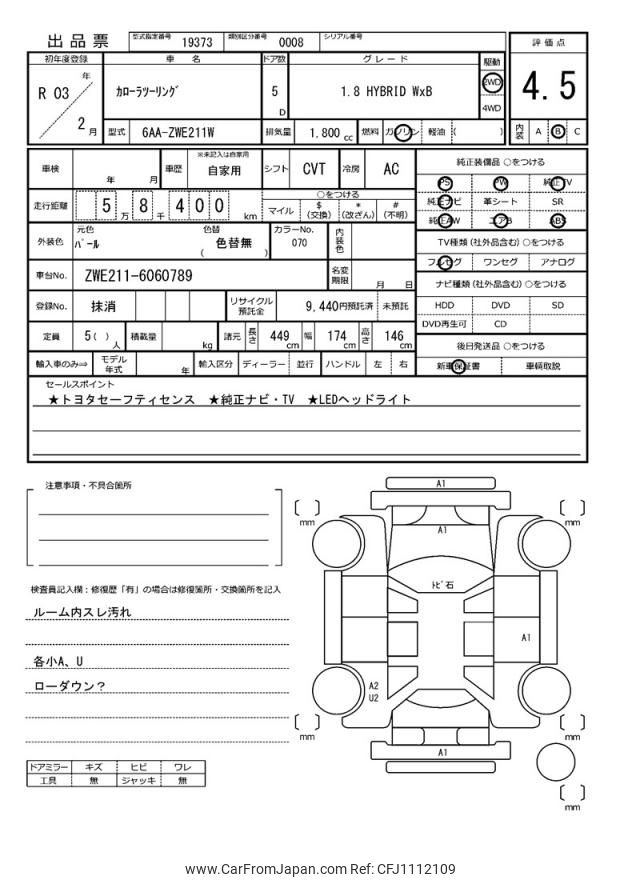 出品票
型式指定番号 19373 類別区分番号 0008 シリアル番号
評価点
4.5
初年度登録 車名 ドア数 グレード 駆動
R 03 年 2 月
カローラツーリング
5 D
1.8 HYBRID WxB
2WD
4WD
型式 6AA-ZWE211W 排気量 1,800 cc 燃料 ガソリン 軽油 ( )
内装 A B C
車検 年 月 車歴 ※未記入は自家用 自家用 シフト CVT 冷房 AC
走行距離 5 万 8 千 4 0 0 km
○をつける
マイル $(交換) *(改ざん) #(不明)
外装色 元色 パール 色替 ( 色替無 ) カラーNo. 070 内装色
車台No. ZWE211-6060789 名変期限 月 日
登録No. 抹消 リサイクル預託金 9,440円預託済 未預託
定員 5( )人 積載量 kg 諸元 長さ 449 cm 幅 174 cm 高さ 146 cm
輸入車のみ⇒ モデル年式 年 輸入区分 ディーラー 並行 ハンドル 左 右
純正装備品 ○をつける
PS PW 純正TV
純正ナビ 革シート SR
純正AW エアB ABS
TV種類 (社外品含む) ○をつける
フルセグ ワンセグ アナログ
ナビ種類 (社外品含む) ○をつける
HDD DVD SD
DVD再生可 CD
後日発送品 ○をつける
新車保証書 車輌取説
セールスポイント
★トヨタセーフティセンス ★純正ナビ・TV ★LEDヘッドライト
注意事項・不具合箇所
検査員記入欄:修復歴「有」の場合は修復箇所・交換箇所を記入
ルーム内スレ汚れ
各小A、U
ローダウン?
ドアミラー キズ ヒビ ワレ
工具 無 ジャッキ 無
A1
mm
mm
A1
トビ石
A1
A2
U2
mm
mm
A1
mm
www.CarFromJapan.com Ref: CFJ1112109